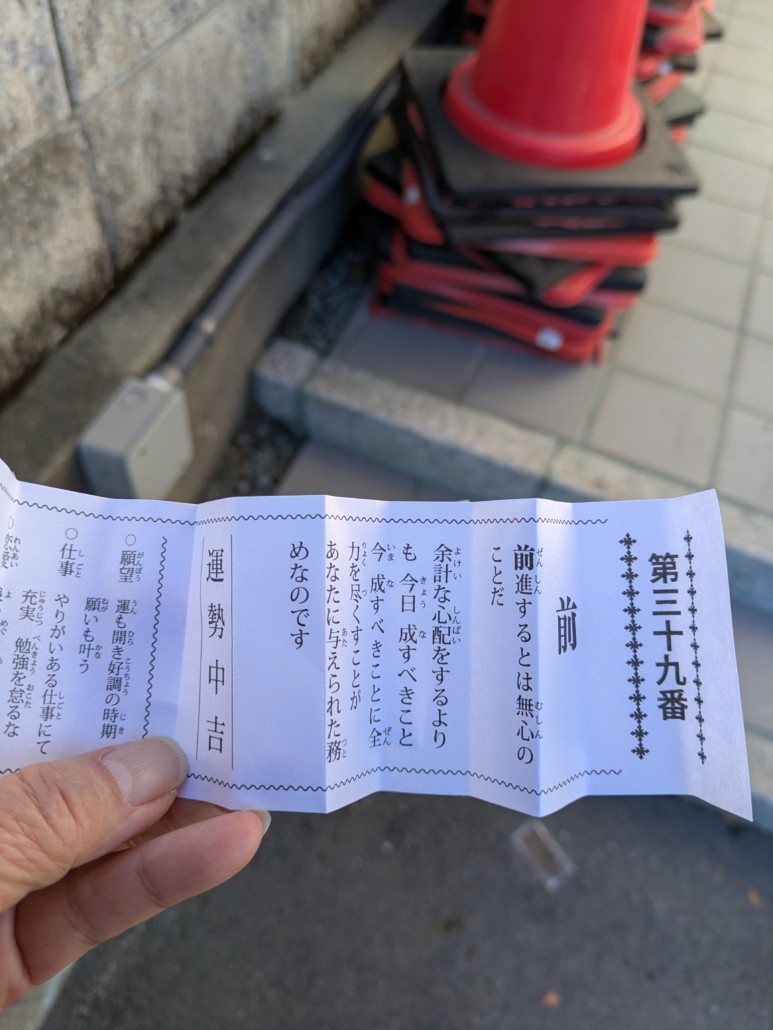 第三十九番
前
前進するとは無心の
ことだ
余計な心配をするより
も 今日 成すべきこと
今 成すべきことに全
力を尽くすことが
あなたに与えられた務
めなのです
運勢 中吉
○願望 運も開き好調の時期
願いも叶う
○仕事 やりがいある仕事にて
充実 勉強を怠るな